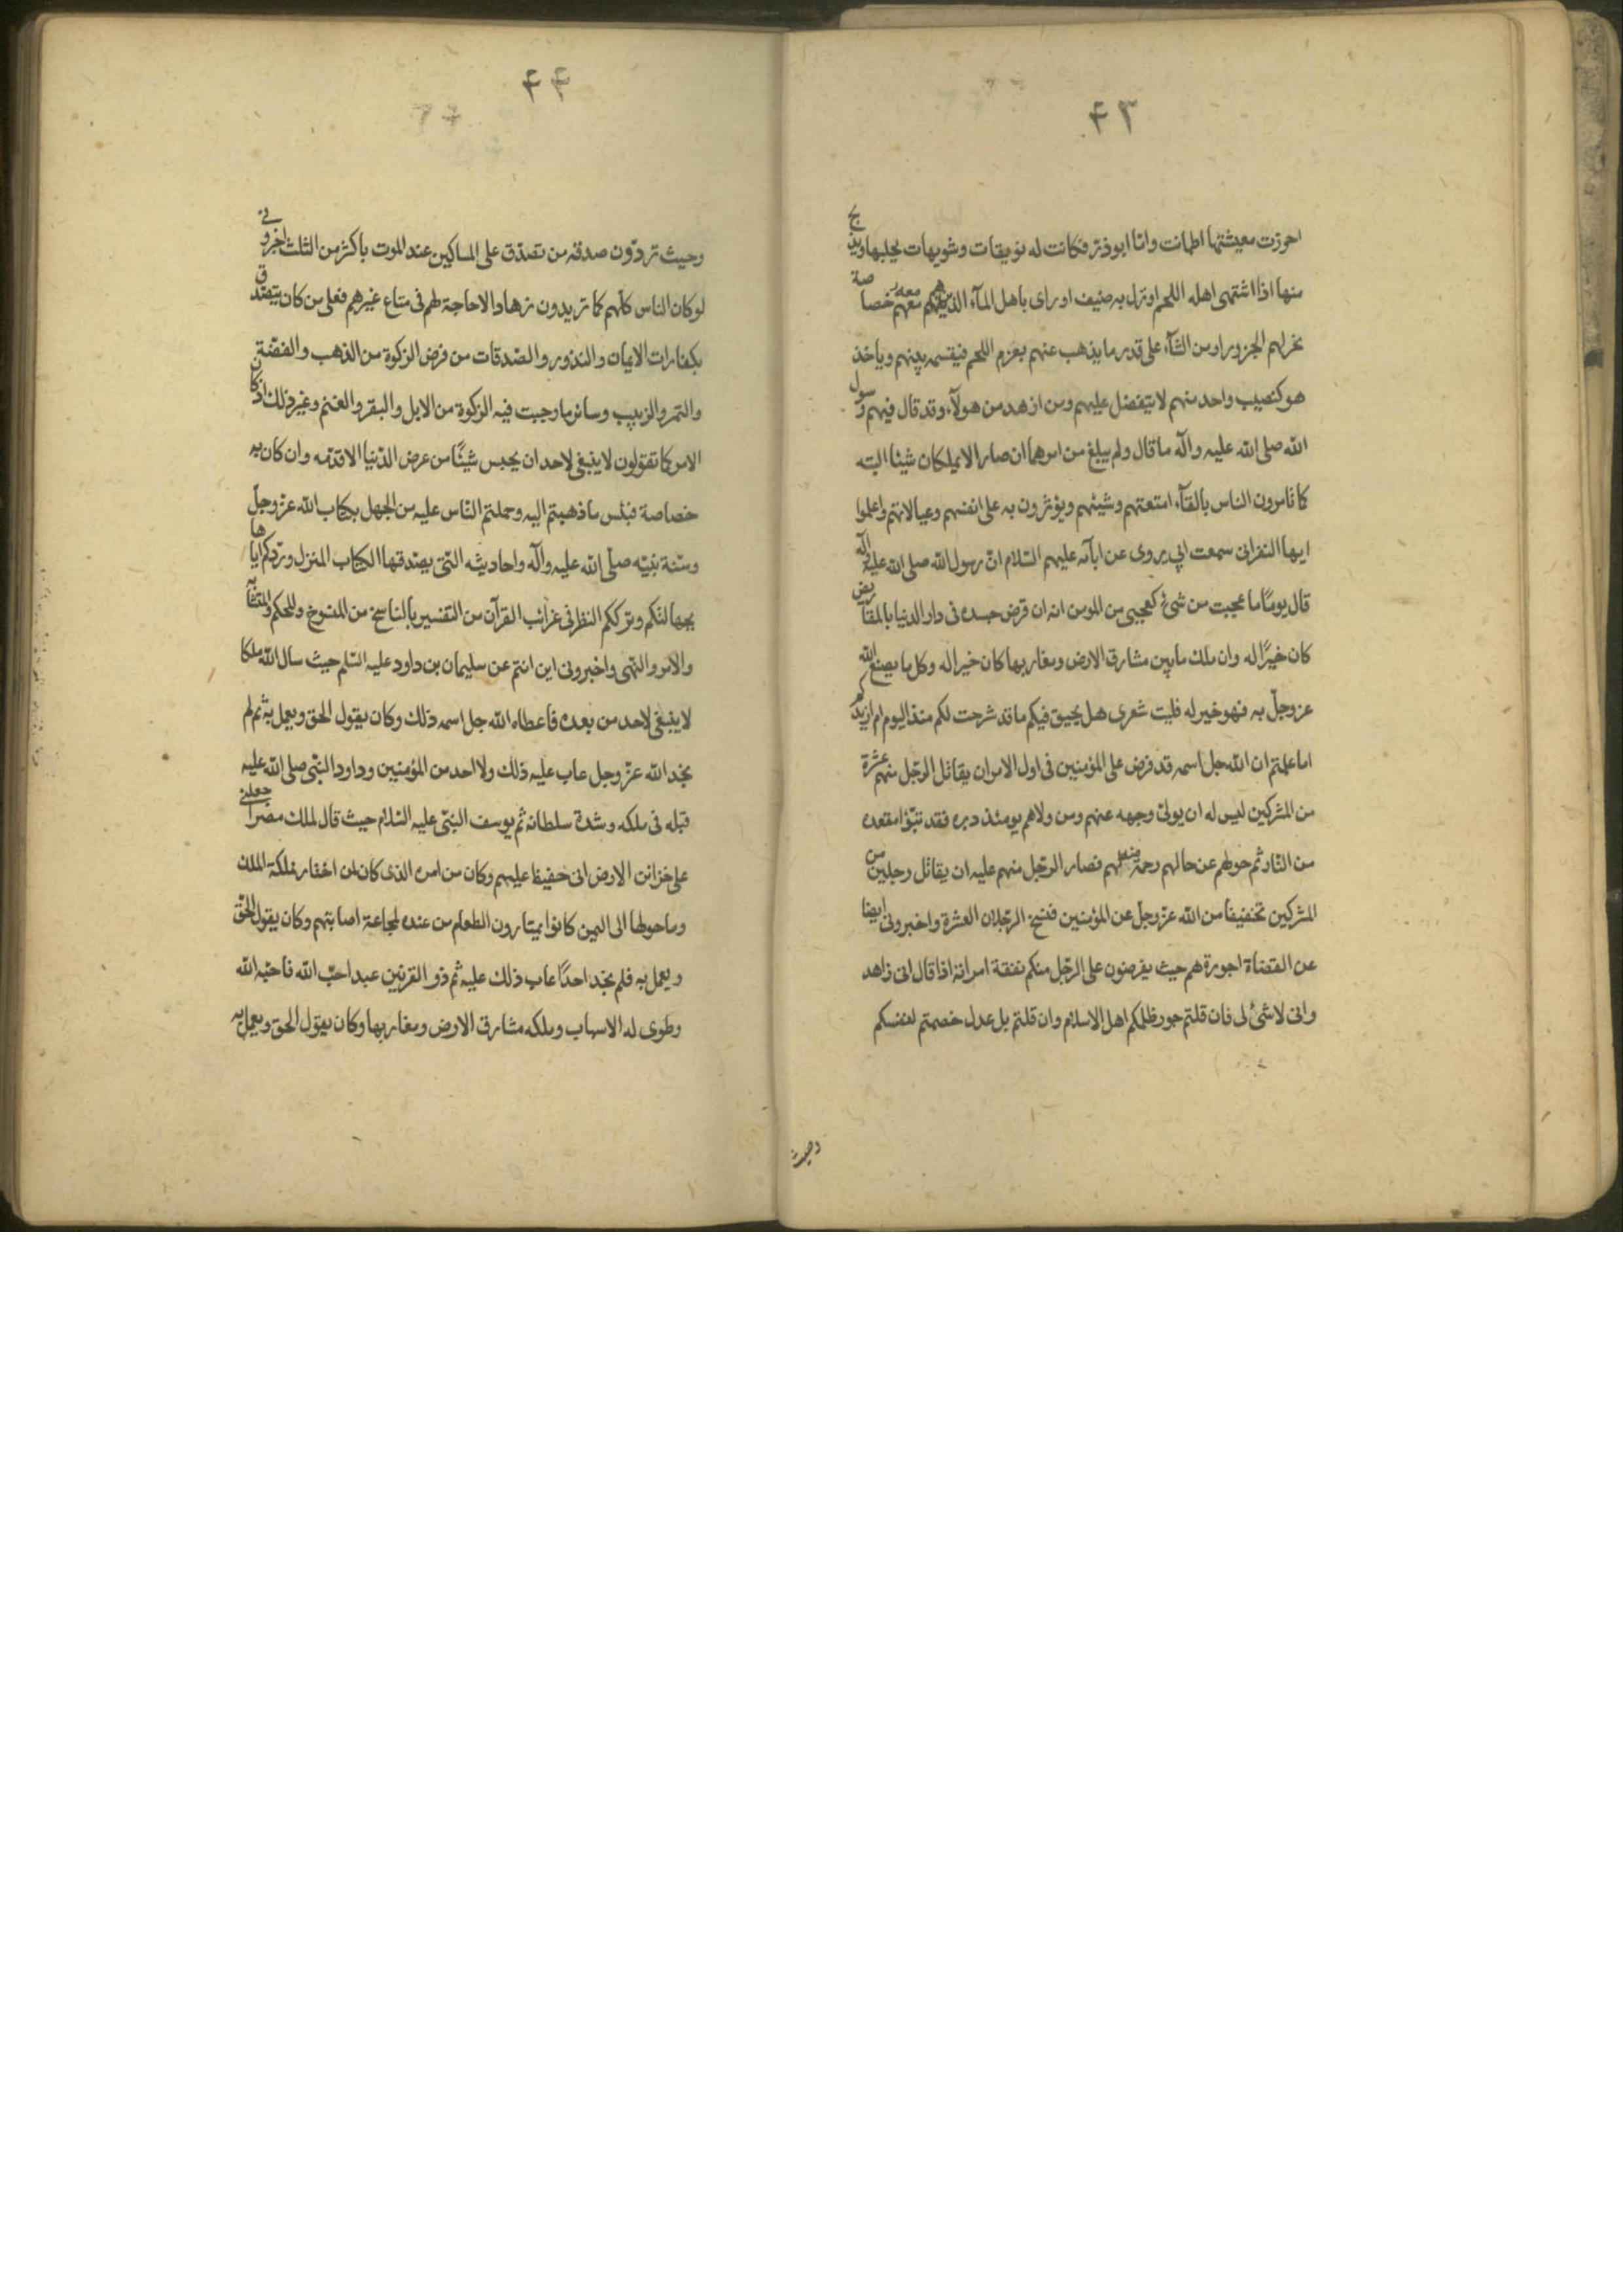 ۴۳
احوزت معيشتها اطمانت واما ابوذر فكانت له نويقات وشويهات يحلبها ويذبح
منها اذا اشتهى اهله اللحم او نزل به ضيف او راى باهل المآء الذين هم معه خصاصة
نحر لهم الجزور او من الشآء على قدر ما يذهب عنهم بعزم اللحم فيقسمه بينهم وياخذ
هو كنصيب واحد منهم لا يتفضل عليهم ومن ازهد من هولآء وقد قال فيهم رسول
الله صلى الله عليه وآله ما قال ولم يبلغ من امرهما ان صارا لا يملكان شيئا البته
كما تامرون الناس بالقآء امتعتهم وشيئهم ويؤثرون به على انفسهم وعيالاتهم واعلموا
ايها النفر انى سمعت ابي يروى عن ابآئه عليهم السّلام انّ رسول الله صلى الله عليه وآله
قال يومًا ما عجبت من شئ كعجبى من المومن انه ان قرض جسده فى دار الدنيا بالمقاريض
كان خيرًا له وان ملك ما بين مشارق الارض ومغاربها كان خيرا له وكل ما يصنع الله
عز وجلّ به فهو خير له فليت شعرى هل يحيق فيكم ما قد شرحت لكم منذ اليوم ام ازيدكم
اما علمتم ان الله جل اسمه قد فرض على المؤمنين فى اول الامر ان يقاتل الرجل منهم عشرة
من المشركين ليس له ان يولّى وجهه عنهم ومن ولاهم يومئذ دبره فقد تبوّا مقعده
من النّار ثم حولهم عن حالهم رحمة منه لهم فصار الرجل منهم عليه ان يقاتل رجلين من
المشركين تخفيفا من الله عزّ وجلّ عن المؤمنين فنسخ الرجلان العشرة واخبرونى ايضا
عن القضاة اجورة هم حيث يفرضون على الرجل منكم نفقة امراته اذا قال انى زاهد
وانى لا شئ لى فان قلتم جور ظلمكم اهل الاسلام وان قلتم بل عدل خصمتم انفسكم
وحيث
۴۴
وحيث تردّون صدقة من تصدّق على المساكين عند الموت باكثر من الثلث اخبرونى
لو كان الناس كلّهم كما تريدون زهادا لا حاجة لهم فى متاع غيرهم فعلى من كان يتصدق
بكفارات الايمان والنذور والصّدقات من فرض الزكوة من الذهب والفضّة
والتمر والزبيب وسائر ما وجبت فيه الزكوة من الابل والبقر والغنم وغير ذلك اذا كان
الامر كما تقولون لا ينبغى لاحد ان يحبس شيئًا من عرض الدّنيا الا قدّمه وان كان به
خصاصة فبئس ما ذهبتم اليه وحملتم النّاس عليه من الجهل بكتاب الله عزّ وجلّ
وسنّة نبيّه صلّى الله عليه وآله واحاديثه التّى يصدقها الكتاب المنزل وردكم اياها
بجهالتكم وترككم النظر فى غرائب القرآن من التفسير بالناسخ من المنسوخ والمحكم والمتشابه
والامر والنهى واخبرونى اين انتم عن سليمان بن داود عليه السّلم حيث سال الله ملكا
لا ينبغى لاحد من بعده فاعطاه الله جل اسمه ذلك وكان يقول الحق ويعمل به ثم لم
نجد الله عزّ وجل عاب عليه ذلك ولا احد من المؤمنين وداود النّبى صلى الله عليه
قبله فى ملكه وشدة سلطانه ثم يوسف النبّى عليه السّلام حيث قال لملك مصر اجعلنى
على خزائن الارض انى حفيظ عليم وكان من امره الذى كان ان اختار مملكة الملك
وما حولها الى اليمن كانوا يمتارون الطعام من عنده لمجاعة اصابتهم وكان يقول الحقّ
ويعمل به فلم نجد احدًا عاب ذلك عليه ثم ذو القرنين عبد احبّ الله فاحبّه الله
وطوى له الاسباب وملكه مشارق الارض ومغاربها وكان يقول الحق ويعمل به